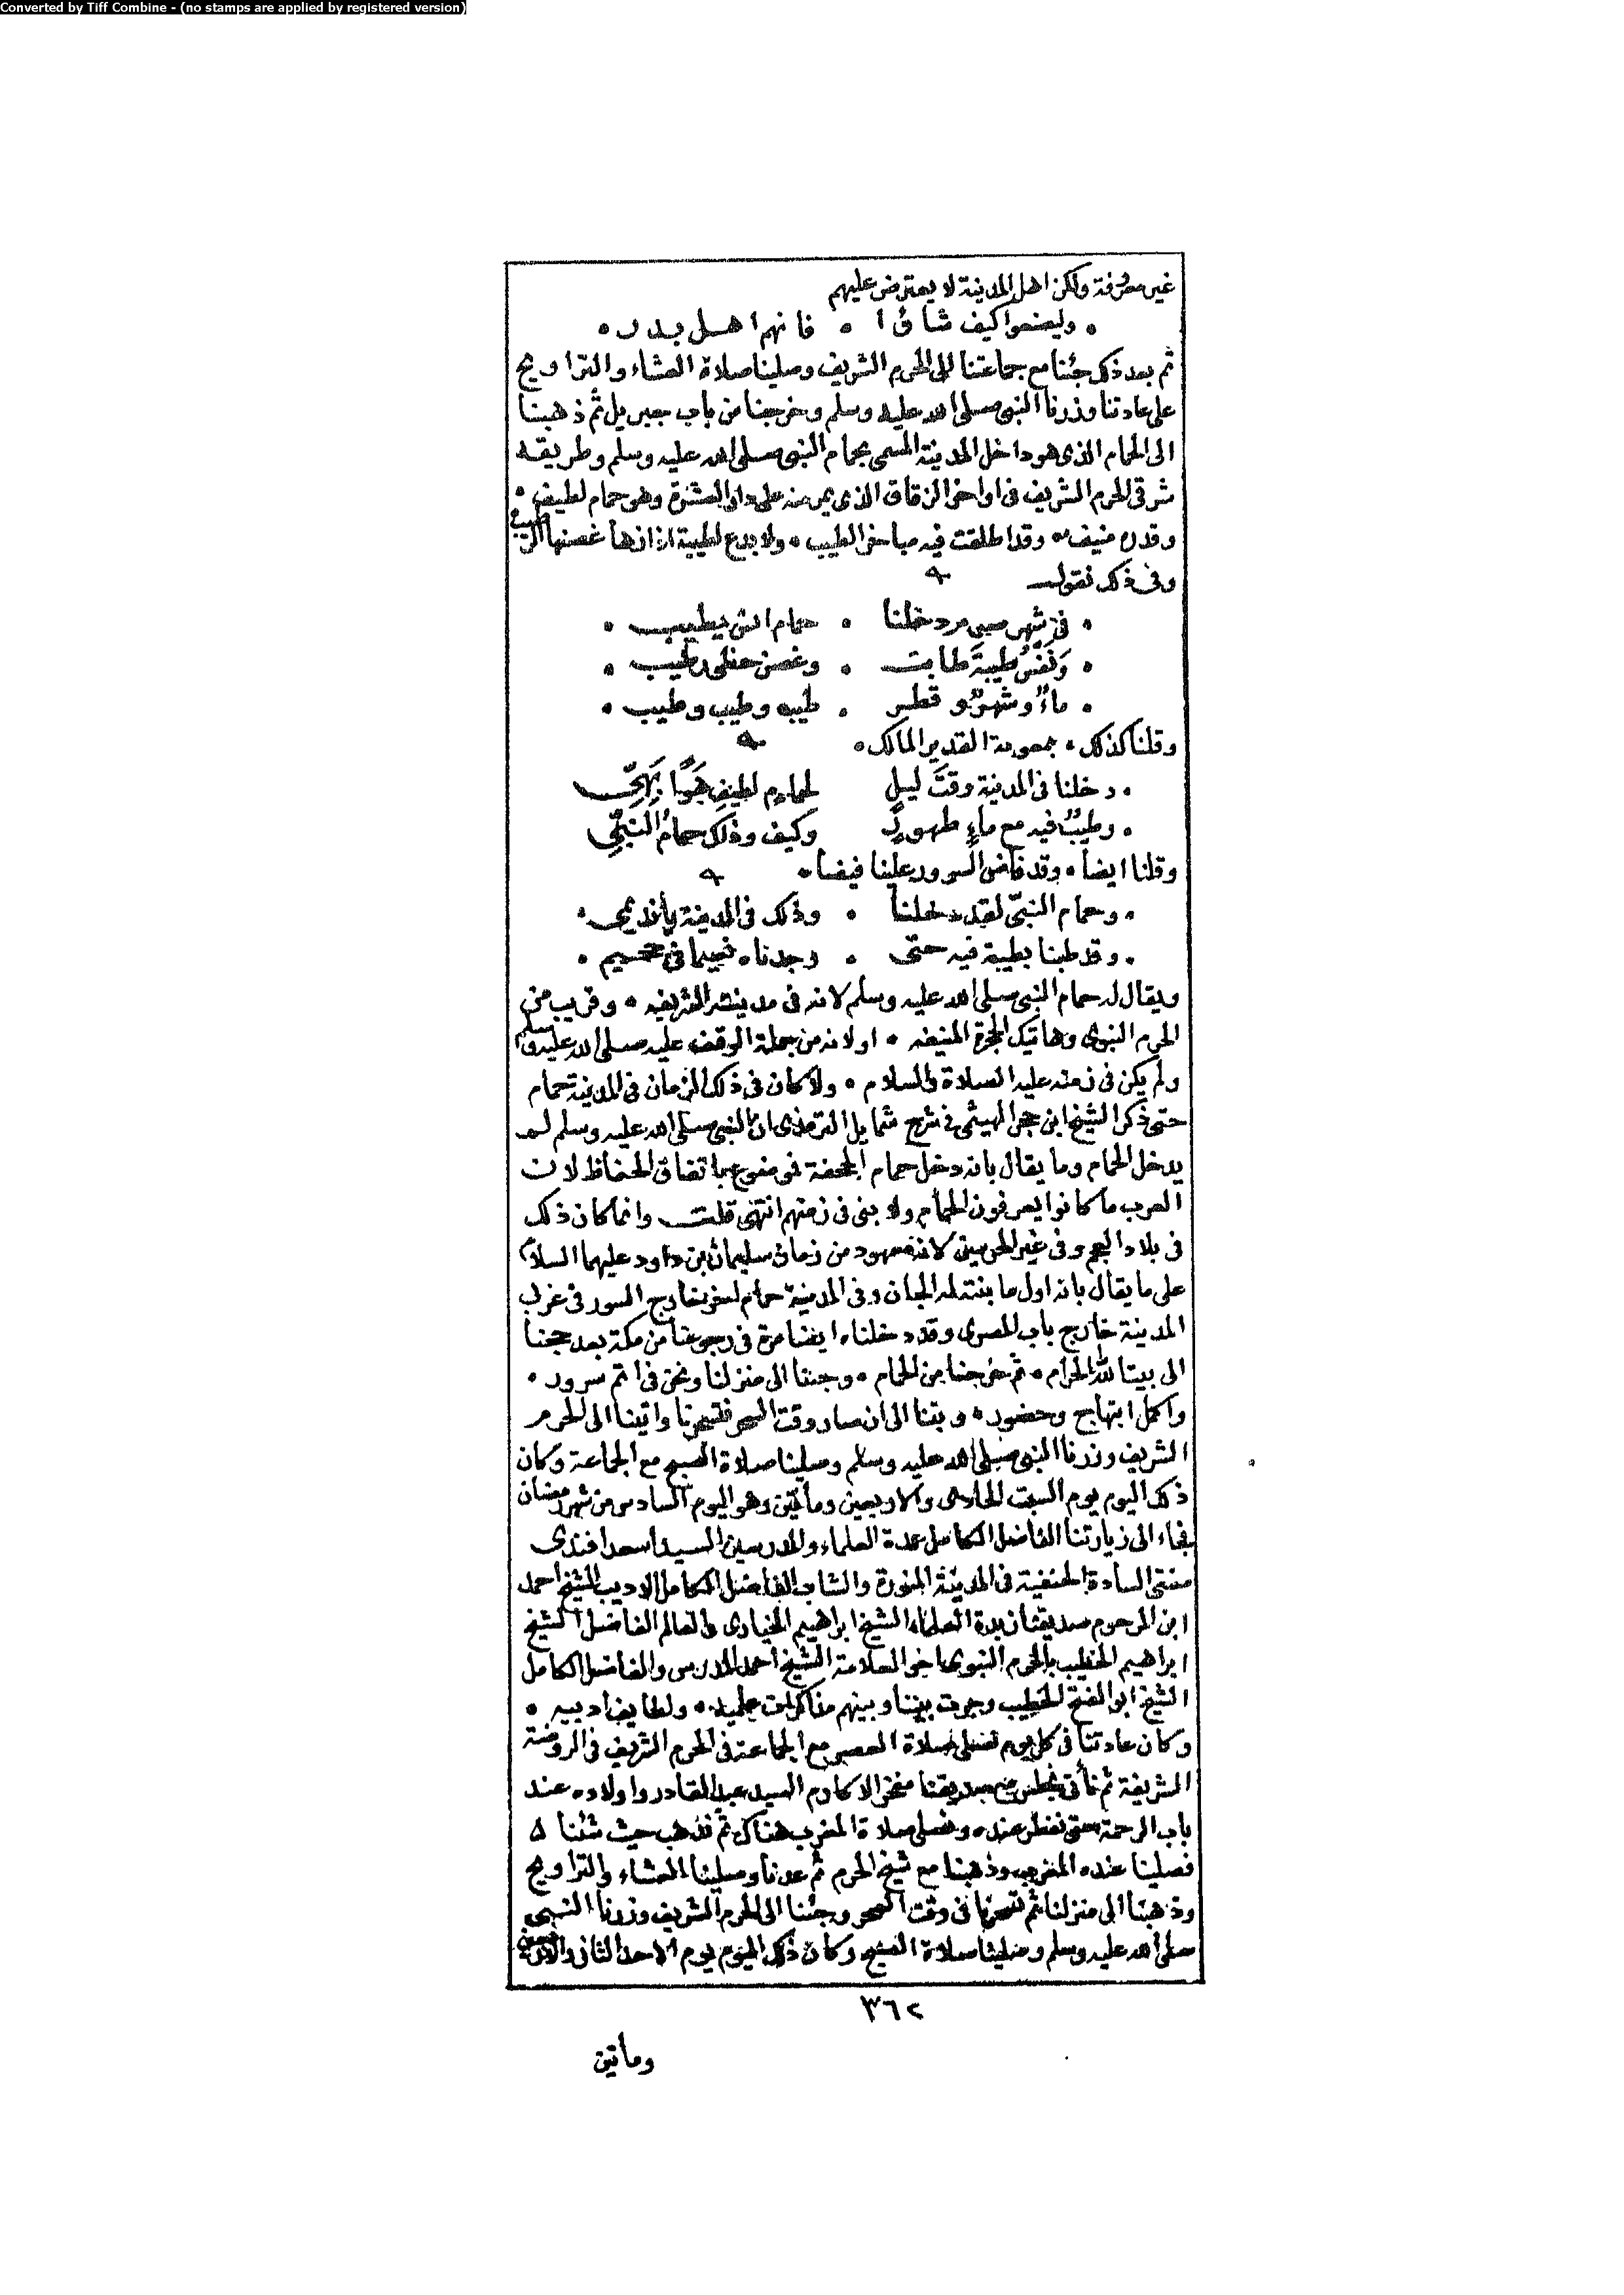 Converted by Tiff Combine - (no stamps are applied by registered version)
غير معروفة ولكن اهل المدينة لا يعترض عليهم
وليصنعوا كيف شاؤا • فانهم اهل بدر •
ثم بعد ذلك جئنا مع جماعتنا الى الحرم الشريف وصلينا صلاة العشاء والتراويح
على عادتنا وزرنا النبي صلى الله عليه وسلم وخرجنا من باب جبريل ثم ذهبنا
الى الحمام الذى هو داخل المدينة المسمى بحمام النبى صلى الله عليه وسلم وطريقه
شرقى الحرم الشريف فى اواخر الزقاق الذى يمر منه على دار العشرة وهو حمام لطيف •
وقدره منيف • وقد اطلقت فيه مباخر الطيب • ولا بدع لطيبة اذا زها غصنها الرطيب
وفى ذلك نقول
• فى شهر صومر دخلنا • حمام انس يطيب •
• ونفس طيبة طابت • وغصن حظى رطيب •
• ماء وشهر وقطر • طيبه وطيب وطيب •
وقلنا كذلك • بمعونة القدير المالك •
• دخلنا فى المدينة وقت ليل لحمام لطيف هوا بهى
• وطيب فيه مع ماء طهور وكيف وذلك حمام النبى
وقلنا ايضا • وقد فاض السرور علينا فيضا •
• وحمام النبى لقد دخلنا • وذلك فى المدينة يا نديمى •
• وقد طبنا بطيبة فيه حتى • وجدناه نعيما فى جحيم •
ويقال له حمام النبى صلى الله عليه وسلم لانه فى مدينته الشريفه • وقريب من
الحرم النبوى وهاتيك الحجرة المنيفه • او لانه من جملة الوقف عليه صلى الله عليه وسلم
ولم يكن فى زمنه عليه الصلاة والسلام • ولا كان فى ذلك الزمان فى المدينة حمام
حتى ذكر الشيخ ابن حجر الهيثمى فى شرح شمايل الترمذى ان النبى صلى الله عليه وسلم لم
يدخل الحمام وما يقال بانه دخل حمام الجحفة فموضوع باتفاق الحفاظ لان
العرب ما كانوا يعرفون الحمام ولا بنى فى زمنهم انتهى قلت وانما كان ذلك
فى بلاد العجم وفى غير الحرمين لانه معهود من زمان سليمان بن داود عليهما السلام
على ما يقال بانه اول ما بنته له الجان وفى المدينة حمام اخر خارج السور فى غرب
المدينة خارج باب المصرى وقد دخلناه ايضا مرة فى رجوعنا من مكة بعد حجنا
الى بيت الله الحرام • ثم خرجنا من الحمام • وجئنا الى منزلنا ونحن فى اتم سرور •
واكمل ابتهاج وحضور • وبتنا الى ان صار وقت السحر فتسحرنا واتينا الى الحرم
الشريف وزرنا النبى صلى الله عليه وسلم وصلينا صلاة الصبح مع الجماعة وكان
ذلك اليوم يوم السبت الحادى والاربعين ومأتين وهو اليوم السادس من شهر رمضان
فجاء الى زيارتنا الفاضل الكامل عمدة العلماء والمدرسين السيد اسعد افندى
مفتى السادة الحنفية فى المدينة المنورة والشاب الفاضل الكامل الاديب الشيخ احمد
ابن المرحوم صديقنا زبدة العلماء الشيخ ابراهيم الخيارى والعالم الفاضل الشيخ
ابراهيم الخطيب بالحرم النبوى اخو العلامة الشيخ احمد المدرس والفاضل الكامل
الشيخ ابو الفتح الخطيب وجرت بيننا وبينهم مذاكرات علميه • ولطايف ادبيه •
وكان عادتنا فى كل يوم نصلى صلاة العصر مع الجماعة فى الحرم الشريف فى الروضة
الشريفة ثم نأتى نجلس مع صديقنا مفخر الاكارم السيد عبد القادر واولاده عند
باب الرحمة حتى نفطر عنده ونصلى صلاة المغرب هناك ثم نذهب حيث شئنا
فصلينا عنده المغرب وذهبنا مع شيخ الحرم ثم عدنا وصلينا العشاء والتراويح
وذهبنا الى منزلنا ثم تسحرنا فى وقت السحر وجئنا الى الحرم الشريف وزرنا النبى
صلى الله عليه وسلم وصلينا صلاة الصبح وكان ذلك اليوم يوم الاحد الثانى والاربعين
٣٦٢
ومأتين